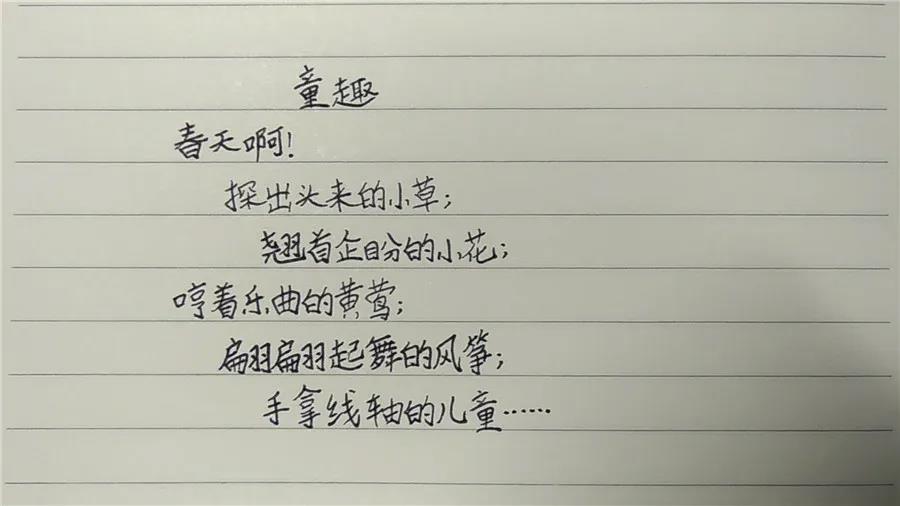 童趣
春天啊!
探出头来的小草;
翘首企盼的小花;
哼着乐曲的黄莺;
翩翩起舞的风筝;
手拿线轴的儿童……